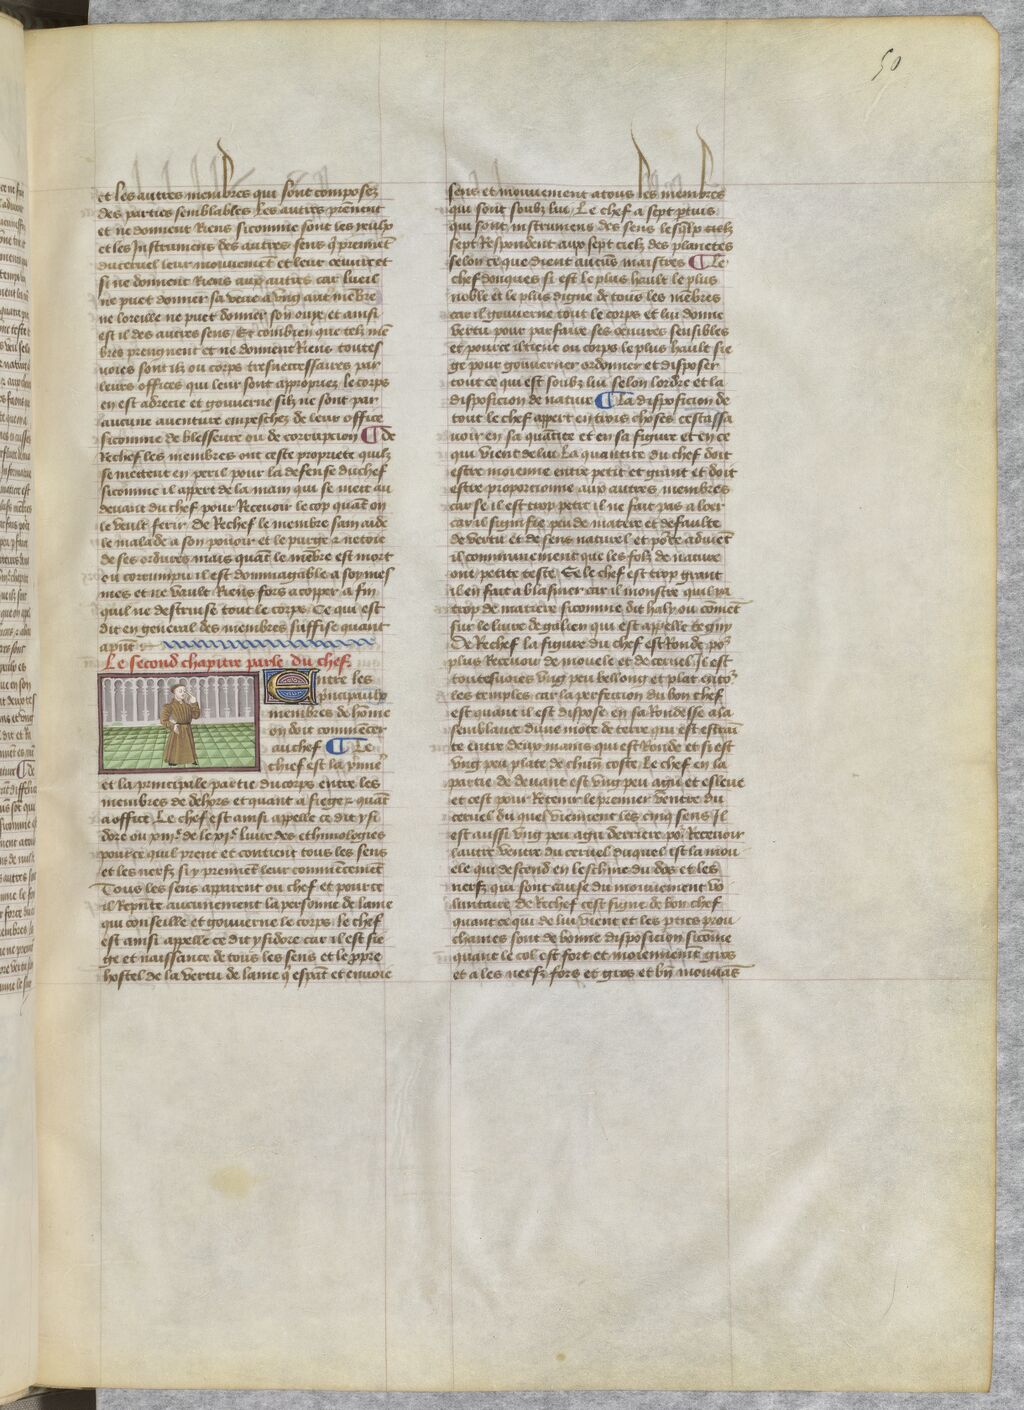 50
et les autres membres qui sont composez
des parties semblables Les autres prennent
et ne donnent Riens sicomme sont les yeulx
et les Instrumens des autres sens q̄ prennēt
du cervel leur mouvemēt et leur oeuvre et
si ne donnent Riens aux autres car lueil
ne puet donner sa veue a ung autͤ mēbre
ne loreille ne puet donner son ouye et ainsi
est il des autres sens Et combien que telz mē
bres prengnent et ne donnent Riens toutes
voies sont ilz ou corps tresnecessaires par
leurs offices qui leur sont appropriez le corps
en est adrecie et gouverne silz ne sont par
aucune aventure empeschez de leur office
sicomme de blesseure ou de corrupcion ¶ De
Rechef les membres ont ceste propriete quilz
se mettent en peril pour la defense du chef
sicomme il appert de la main qui se mett au
devant du chef pour Recevoir le cop quāt on
le veult ferir De Rechef le membre sain aide
le malade a son povoir et le purge ⁊ netoie
de ses ordures mais quāt le mēbre est mort
ou corrumpu il est dommagable a soy mes
mes et ne vault Riens fors a copper a fin
quil ne destruise tout le corps Ce qui est
dit en general des membres suffise quant
a pn̄t
Le second chapitre parle du chef
Entre les
principaulx
membres de hōme
on doit commēcer
au chef ¶ Le
chief est la p̄mie
et la principale partie du corps entre les
membres de dehors et quant a siege ⁊ quāt
a office Le chef est ainsi appelle ce dit ysi
dore ou xiiiᵉ de le xiᵉ livre des ethimologies
pource quil prent et contient tous les sens
et les nerfz si y prennēt leur commēcemēt
Tous les sens apparent ou chef et pource
il Repn̄te aucunement la personne de lame
qui conseille et gouverne le corps le chef
est ainsi appelle ce dit ysidore car il est sie
ge et naissance de tous les sens et le ppre
hostel de la vertu de lame q̄ espāt et envoie
sens et mouvement a tous les membres
qui sont soubz lui Le chef a sept ptuis
qui sont instrumens des sens lesq̄lx
sept Respondent aux sept cielz des planetes
selon ce que dient aucūs maistres ¶ Le
chef donques si est le plus hault le plus
noble et le plus digne de tous les mēbres
car il gouverne tout le corps et lui donne
vertu pour parfaire ses oeuvres sensibles
et pource il tient ou corps le plus hault sie
ge pour gouverner ordonner et disposer
tout ce qui est soubz lui selon lordre et la
disposicion de nature ¶ La disposicion de
tout le chef appert en trois choses cest assa
voir en sa quātite et en sa figure et en ce
qui vient de lui La quantite du chef doit
estre moienne entre petit et grant et doit
estre proporcionne aux autres membres
car se il est trop petit il ne fait pas a loer
car il signifie peu de matiere et defaulte
de vertu et de sens naturel et po͛ce adviēt
il communement que les folz de nature
ont petite teste Se le chef est trop grant
il en fait a blasmer car il monstre quil ya
trop de matiere sicomme dit haly ou comēt
sur le livre de galien qui est appelle tegny
De Rechef la figure du chef est Ronde po͛
plus Recevoir de mouele et de cervel Il est
toutesvoies ung peu bellong et plat entͦ
les temples car la perfection du bon chef
est quant il est dispose en sa Rondesse a la
semblance dune mote de terre qui est estrai
te entre deux mains qui est Ronde et si est
ung peu plate de chūn coste Le chef en la
partie de devant est ung peu agu et esleve
et cest pour Retenir le premier ventre du
cervel du quel viennent les cinq sens Il
est aussi ung peu agu derriere po͛ Recevoir
lautre ventre du cervel duquel ist la mou
ele qui descend en leschine du dos et les
nerfz qui sont cause du mouvement vo
luntaire De Rechef cest signe de bon chef
quant ce qui de lui vient et les pties prou
chaines sont de bonne disposicion sicōme
quant le col est fort et moiennemēt gros
et a les nerfz fors et gros et bn̄ mouvās